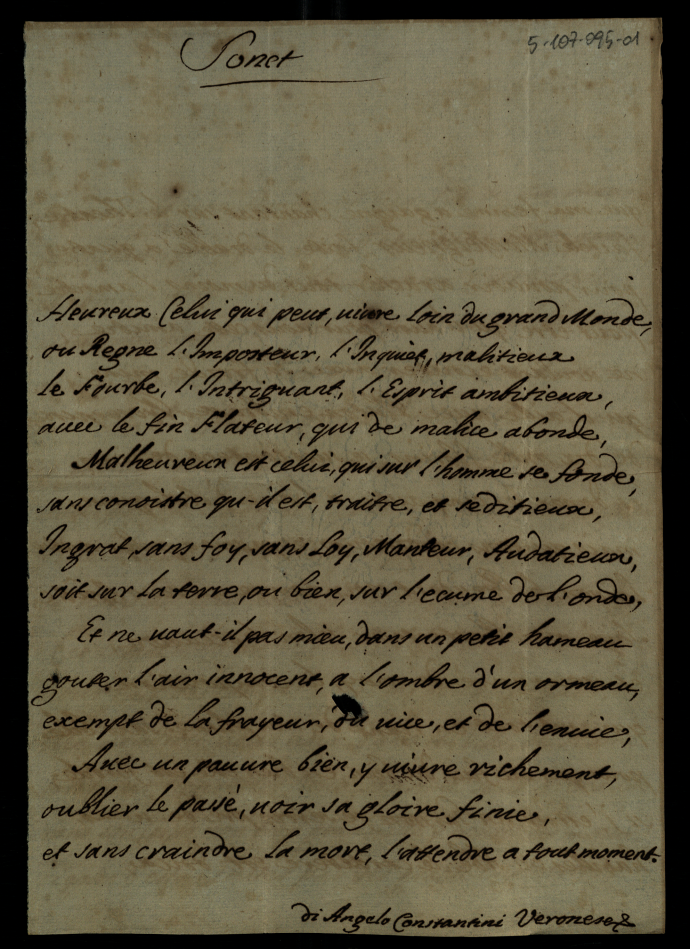 5-107-095-01
Sonet
Heureux Celui qui peut, uiure Loin du grand Monde,
ou Regne l'Imposteur, l'Inquiet, malitieux
le Fourbe, l'Intriguant, l'Esprit ambitieux,
auec le fin Flateur, qui de malice abonde,
Malheureux est celui, qui sur l'homme se fonde,
sans conoistre qu-il est, traitre, et seditieux,
Ingrat, sans foy, sans Loy, Manteur, Audatieux,
soit sur la terre, ou bien, sur l'ecume de l'onde,
Et ne uaut-il pas mieu, dans un petit hameau
gouter l'air innocent, a l'ombre d'un ormeau,
exempt de la frayeur, du uice, et de l'enuie,
Auec un pauure bien, y uiure richement,
oublier le passé, uoir sa gloire finie,
et sans craindre la mort, l'attendre a tout moment.
di Angelo Constantini Veronese